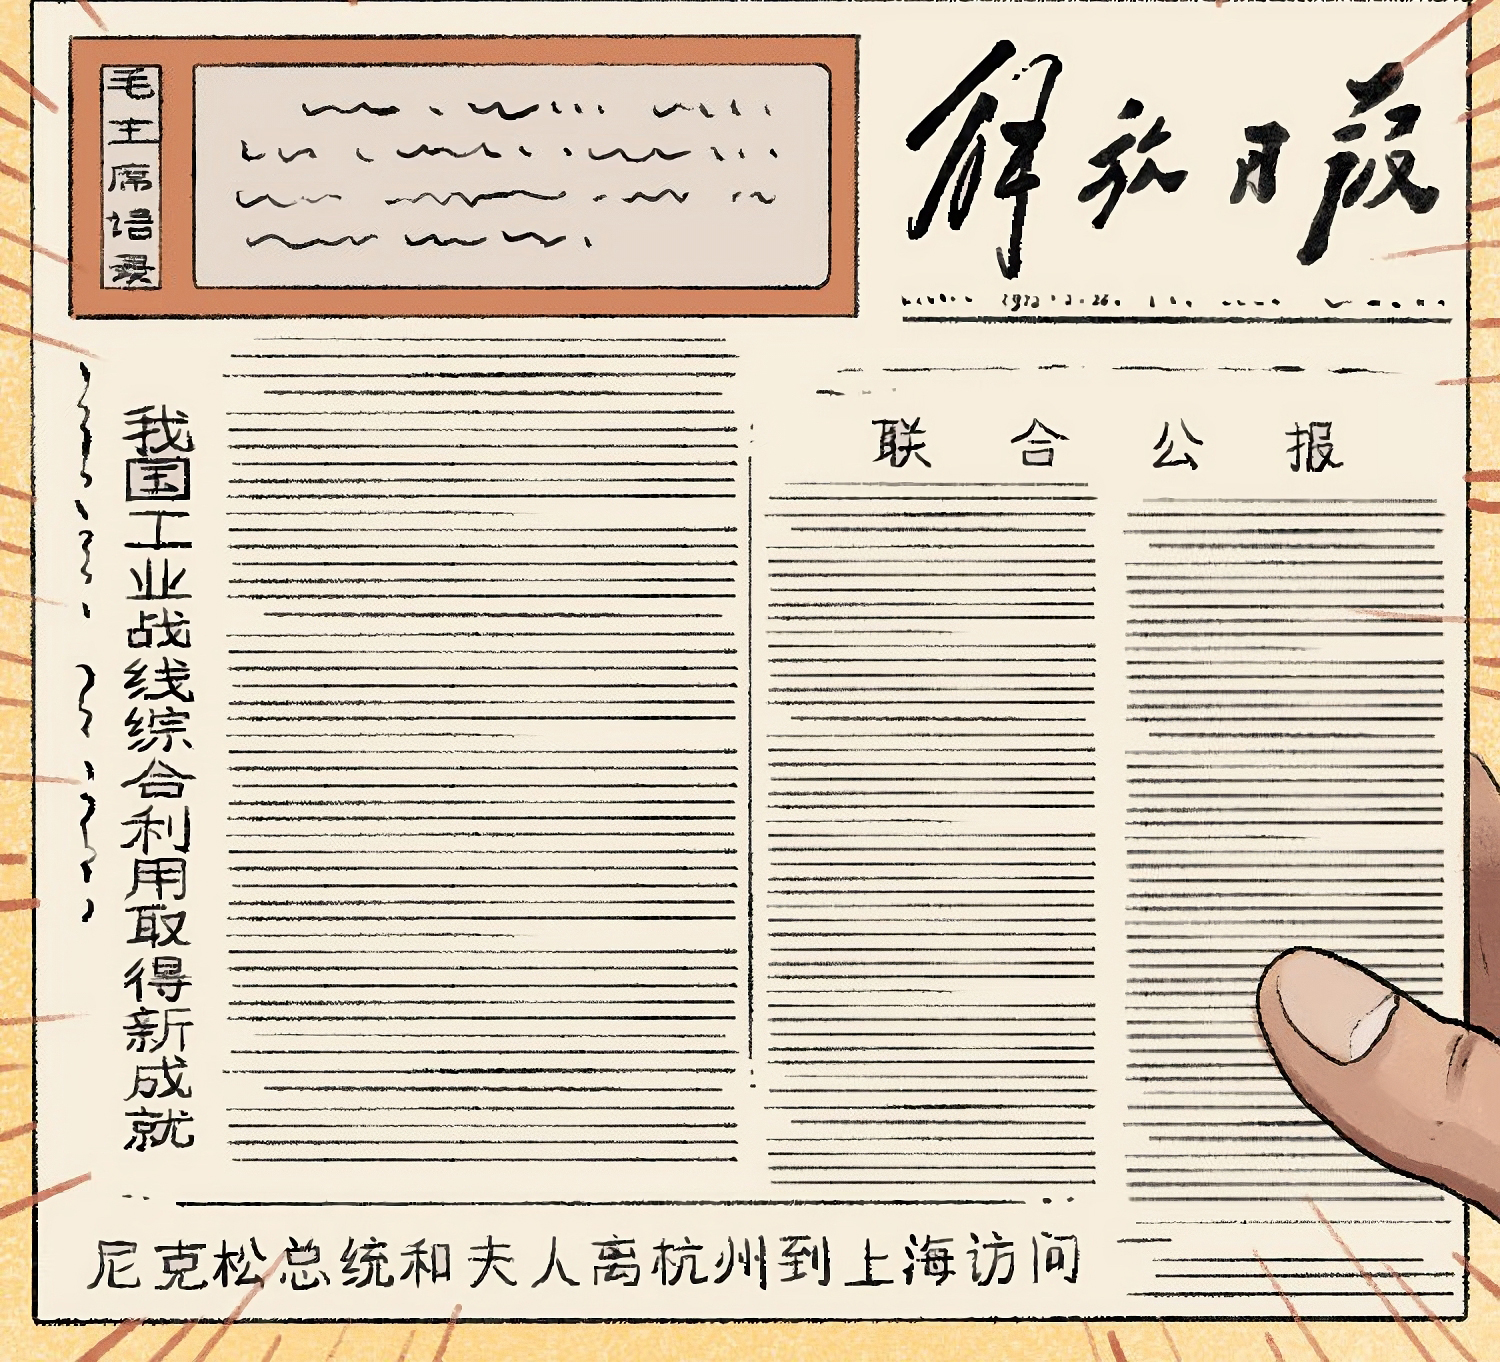 毛主席语录
解放日报
1972.2.28.
联合公报
我国工业战线综合利用取得新成就
尼克松总统和夫人离杭州到上海访问